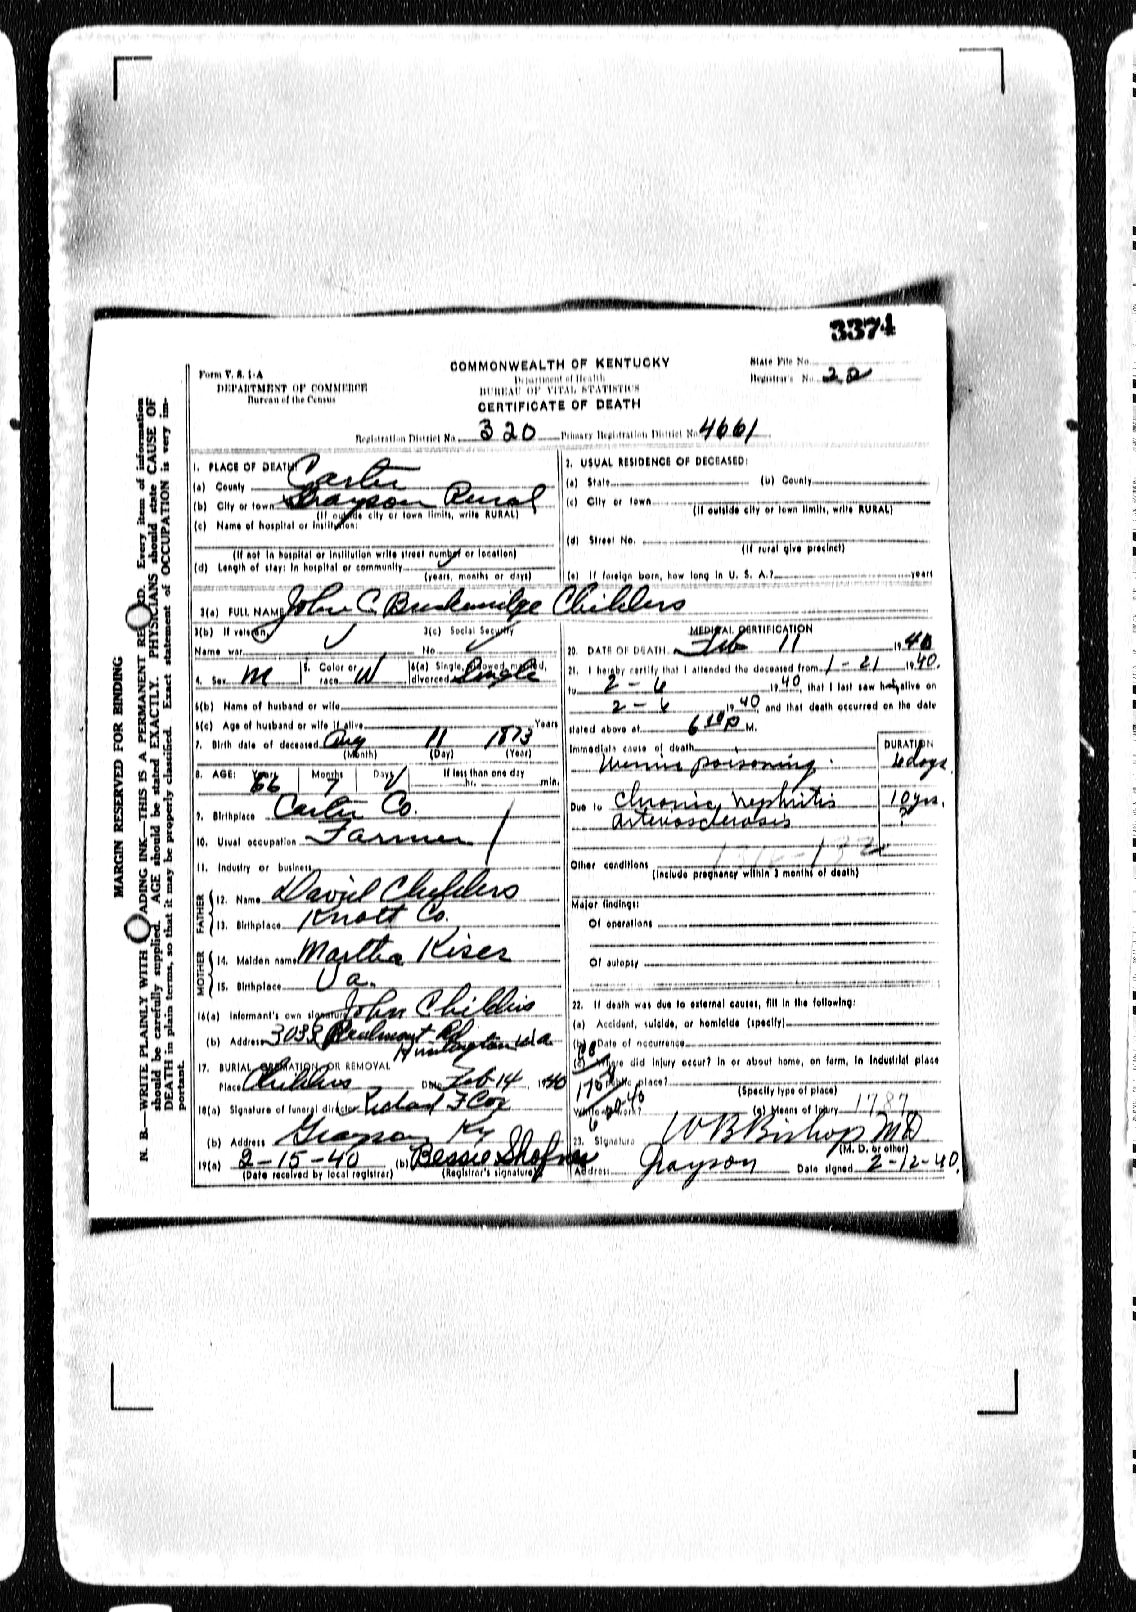 3374
Form V. S. 1-A
DEPARTMENT OF COMMERCE
Bureau of the Census
COMMONWEALTH OF KENTUCKY
Department of Health
BUREAU OF VITAL STATISTICS
CERTIFICATE OF DEATH
State File No.
Registrar's No. 20
Registration District No. 320 Primary Registration District No. 4661
MARGIN RESERVED FOR BINDING
N. B.—WRITE PLAINLY WITH ADING INK—THIS IS A PERMANENT RE D. Every item of information
should be carefully supplied. AGE should be stated EXACTLY. PHYSICIANS should state CAUSE OF
DEATH in plain terms, so that it may be properly classified. Exact statement of OCCUPATION is very im-
portant.
1. PLACE OF DEATH:
(a) County Carter
(b) City or town Grayson Rural
(If outside city or town limits, write RURAL)
(c) Name of hospital or institution:
(If not in hospital or institution write street number or location)
(d) Length of stay: In hospital or community
(years, months or days)
2. USUAL RESIDENCE OF DECEASED:
(a) State (b) County
(c) City or town
(If outside city or town limits, write RURAL)
(d) Street No.
(If rural give precinct)
(e) If foreign born, how long in U. S. A.? years
3(a) FULL NAME John C. Breckenridge Childers
3(b) If veteran, 3(c) Social Security
Name war No.
4. Sex M 5. Color or race W 6(a) Single, widowed, married, divorced Single
6(b) Name of husband or wife
6(c) Age of husband or wife if alive Years
7. Birth date of deceased Aug 11 1873
(Month) (Day) (Year)
8. AGE: Years 66 Months Days If less than one day
hr. min.
9. Birthplace Carter Co.
10. Usual occupation Farmer
11. Industry or business
FATHER
12. Name David Childers
13. Birthplace Knott Co.
MOTHER
14. Maiden name Martha Kiser
15. Birthplace Va.
16(a) Informant's own signature John Childers
(b) Address 3033 Rd
Huntington W Va
17. BURIAL, CREMATION, OR REMOVAL
Place Childers Date Feb 14, 1940
18(a) Signature of funeral director Richard F Cox
(b) Address Grayson Ky
19(a) 2-15-40 (b) Bessie
(Date received by local registrar) (Registrar's signature)
MEDICAL CERTIFICATION
20. DATE OF DEATH Feb 11 1940
21. I hereby certify that I attended the deceased from 1-21 1940,
to 2-6 1940, that I last saw him alive on
2-6 1940, and that death occurred on the date
stated above at 6 10 P M.
Immediate cause of death DURATION
Uremic poisoning. 6 days
Due to Chronic Nephritis 10 yrs.
Arteriosclerosis ?
Other conditions
(Include pregnancy within 3 months of death)
Major findings:
Of operations
Of autopsy
22. If death was due to external causes, fill in the following:
(a) Accident, suicide, or homicide (specify)
(b) Date of occurrence
(c) Where did injury occur? In or about home, on farm, in industrial place
public place?
(Specify type of place)
While at work? (e) Means of Injury 1787
23. Signature W B Bishop MD
(M. D. or other)
Address Grayson Date signed 2-12-40.